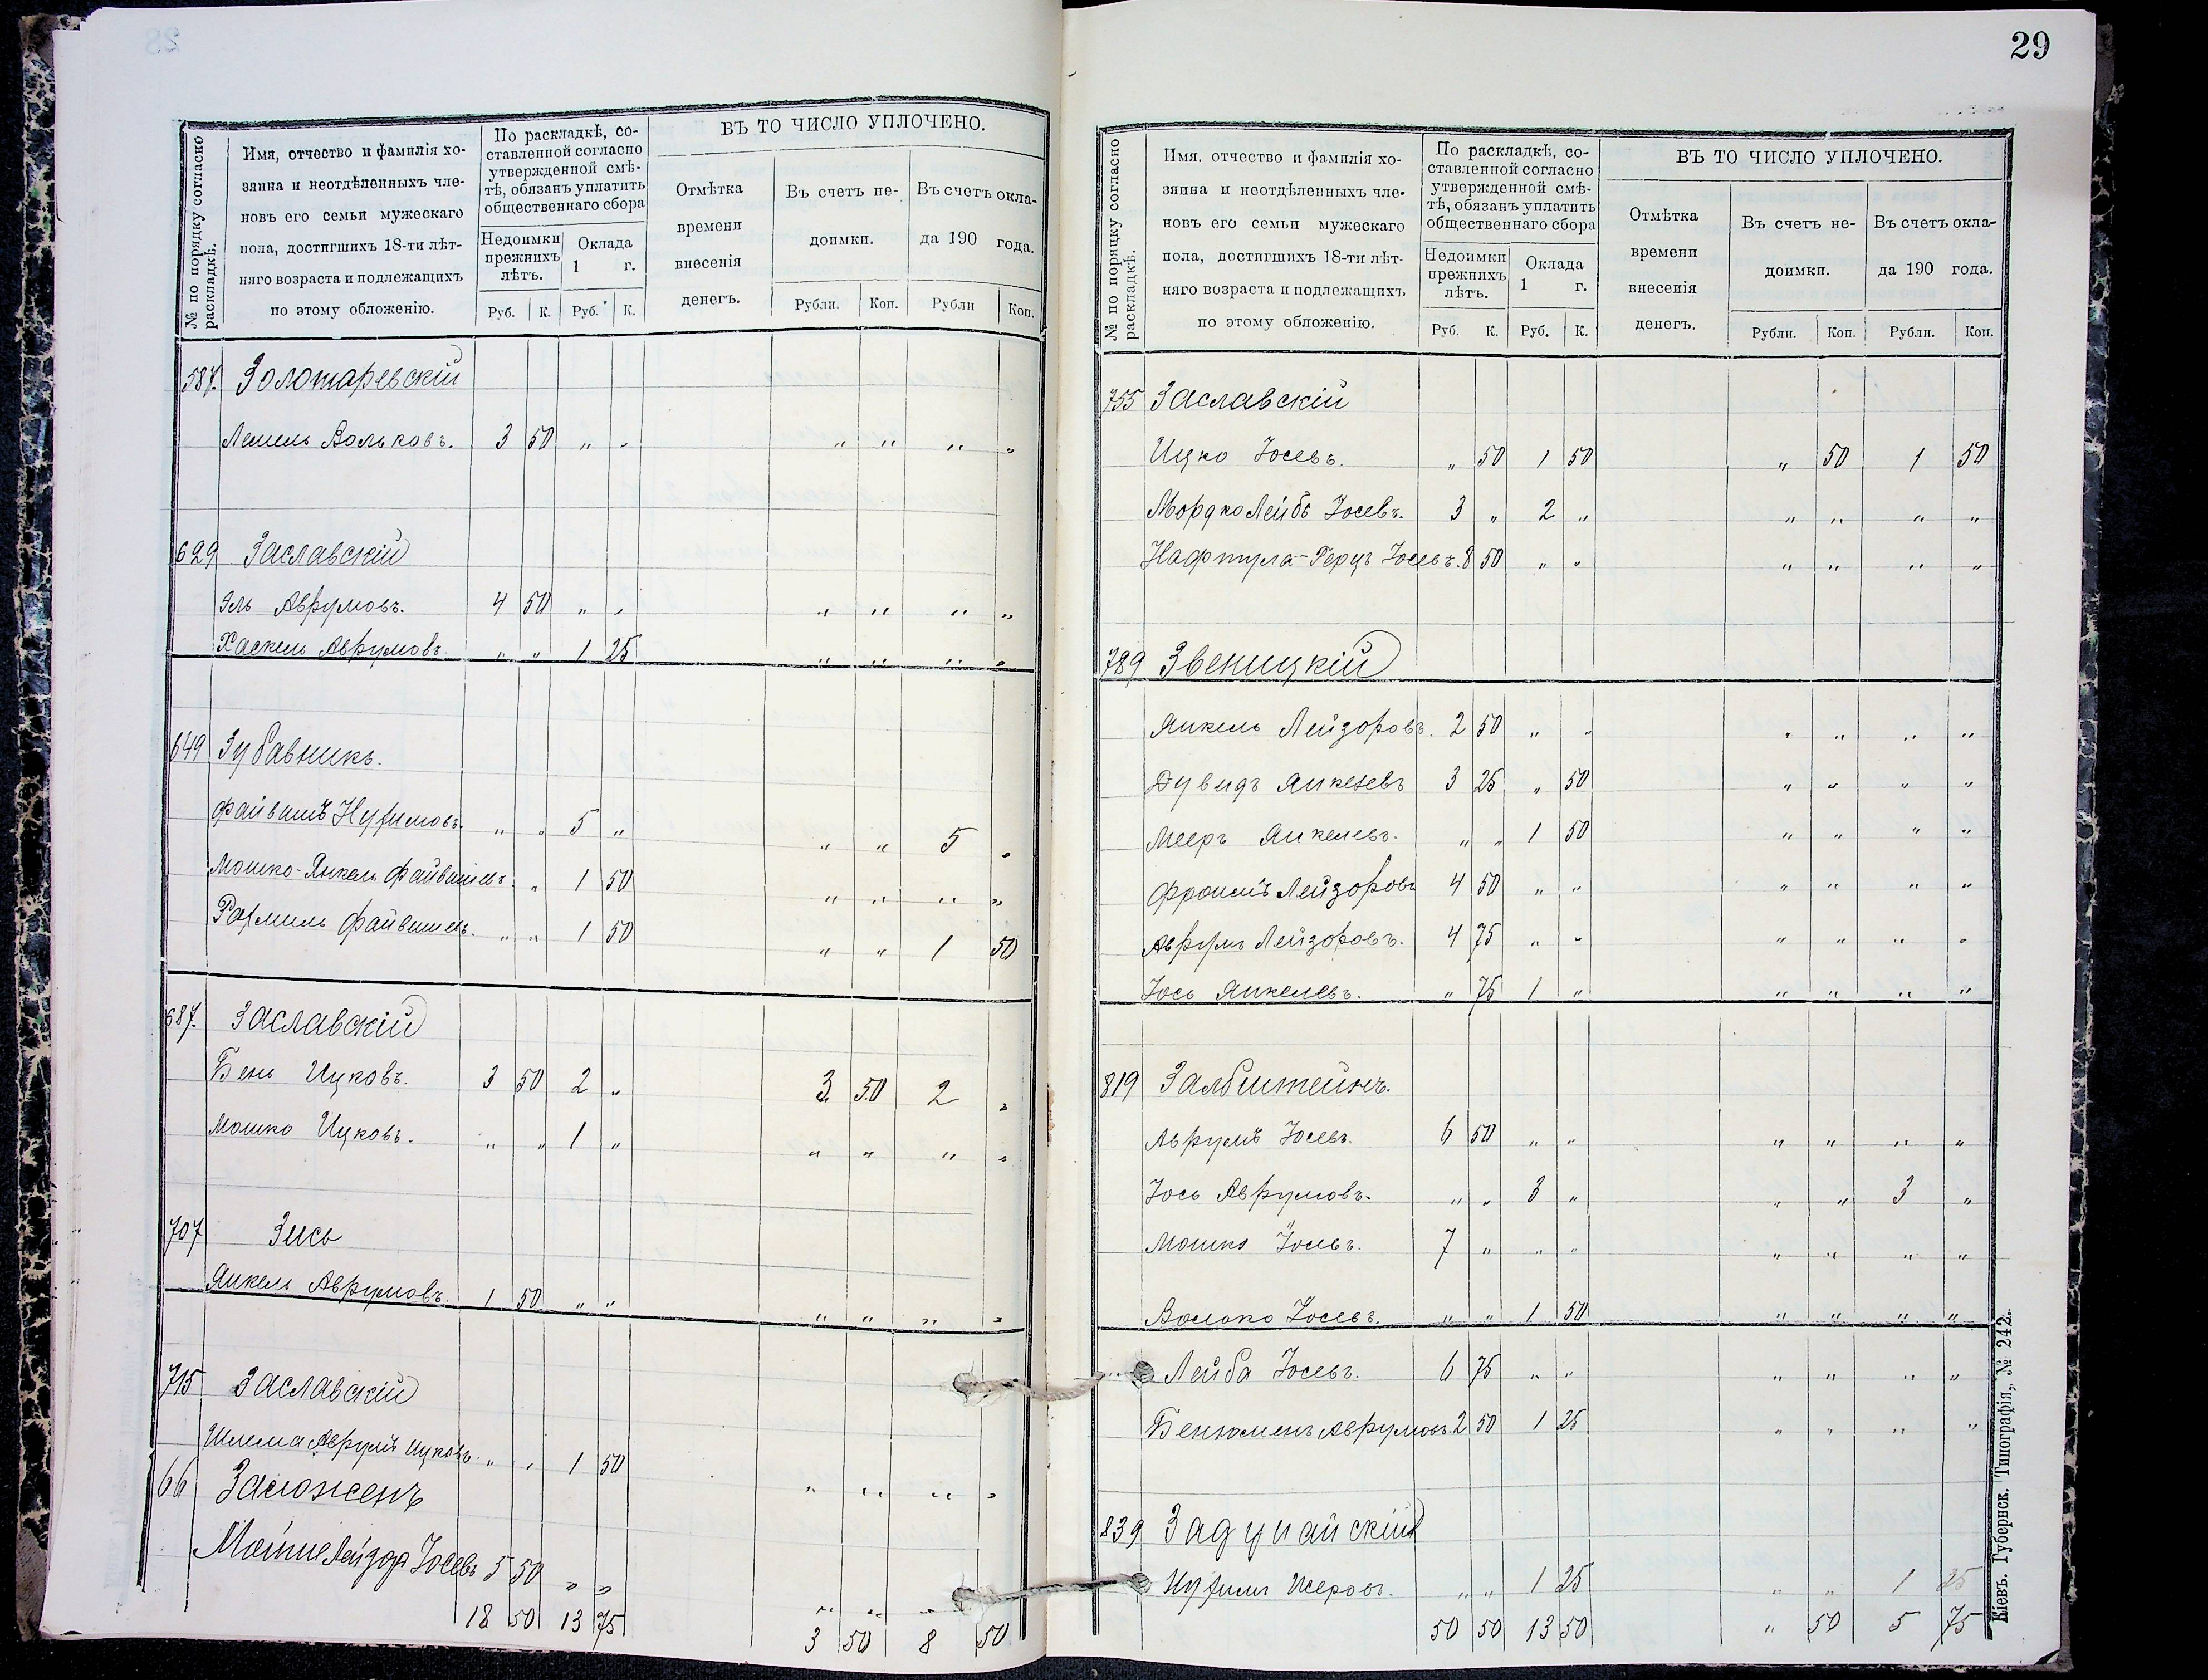 29
№ по порядку согласно раскладкѣ.
Имя, отчество и фамилія хо-
зяина и неотдѣленныхъ чле-
новъ его семьи мужескаго
пола, достигшихъ 18-ти лѣт-
няго возраста и подлежащихъ
по этому обложенію.
По раскладкѣ, со-
ставленной согласно
утвержденной смѣ-
тѣ, обязанъ уплатить
общественнаго сбора
Недоимки
прежнихъ
лѣтъ.
Оклада
1 г.
Руб. К. Руб. К.
ВЪ ТО ЧИСЛО УПЛОЧЕНО.
Отмѣтка
времени
внесенія
денегъ.
Въ счетъ не-
доимки.
Въ счетъ окла-
да 190 года.
Рубли. Коп. Рубли Коп.
587. Золотаревскій
Лемель Вольковъ. 3 50 „ „ „ „ „ „
629 Заславскій
Эль Аврумовъ. 4 50 „ „ „ „ „ „
Хаскель Аврумовъ. „ „ 1 25 „ „ „ „
649 Зубавникъ.
Файвишъ Нухимовъ. „ „ 5 „ „ „ 5 „
Мошко-Янкель Файвишевъ. „ 1 50 „ „ „ „
Рахмиль Файвишевъ. „ „ 1 50 „ „ 1 50
687. Заславскій
Бень Ицковъ. 3 50 2 „ 3 50 2 „
Мошко Ицковъ. „ „ 1 „ „ „ „ „
707 Зись
Янкель Аврумовъ. 1 50 „ „ „ „ „ „
715 Заславскій
Шлема Аврумъ Ицковъ. „ „ 1 50 „ „ „ „
66
Лейзор Іосевъ 5 50 „ „ „ „ „
18 50 13 75 3 50 8 50
№ по порядку согласно раскладкѣ.
Имя, отчество и фамилія хо-
зяина и неотдѣленныхъ чле-
новъ его семьи мужескаго
пола, достигшихъ 18-ти лѣт-
няго возраста и подлежащихъ
по этому обложенію.
По раскладкѣ, со-
ставленной согласно
утвержденной смѣ-
тѣ, обязанъ уплатить
общественнаго сбора
Недоимки
прежнихъ
лѣтъ.
Оклада
1 г.
Руб. К. Руб. К.
ВЪ ТО ЧИСЛО УПЛОЧЕНО.
Отмѣтка
времени
внесенія
денегъ.
Въ счетъ не-
доимки.
Въ счетъ окла-
да 190 года.
Рубли. Коп. Рубли. Коп.
755 Заславскій
Ицко Іосевъ. „ 50 1 50 „ 50 1 50
Мордко Лейбъ Іосевъ. 3 „ 2 „ „ „ „ „
Нафтула-Герцъ Іосевъ. 8 50 „ „ „ „ „ „
789 Звеницкій
Янкель Лейзоровъ. 2 50 „ „ „ „ „ „
Дувидъ Янкелевъ 3 25 „ 50 „ „ „ „
Мееръ Янкелевъ. „ „ 1 50 „ „ „ „
Фроимъ Лейзоровъ 4 50 „ „ „ „ „ „
Аврумъ Лейзоровъ. 4 75 „ „ „ „ „ „
Іось Янкелевъ. „ 75 1 „ „ „ „ „
819 Залбштейнъ.
Аврумъ Іосевъ. 6 50 „ „ „ „ „ „
Іось Аврумовъ. „ „ 3 „ „ „ 3 „
Мошко Іосевъ. 7 „ „ „ „ „ „ „
Волько Іосевъ. „ „ 1 50 „ „ „ „
Лейба Іосевъ. 6 75 „ „ „ „ „ „
Бенюменъ Аврумовъ 2 50 1 25 „ „ „ „
839 Задунайскій
Нухимъ „ „ 1 25 „ „ 1 25
50 50 13 50 „ 50 5 75
Кіевъ. Губернск. Типографія, № 242.